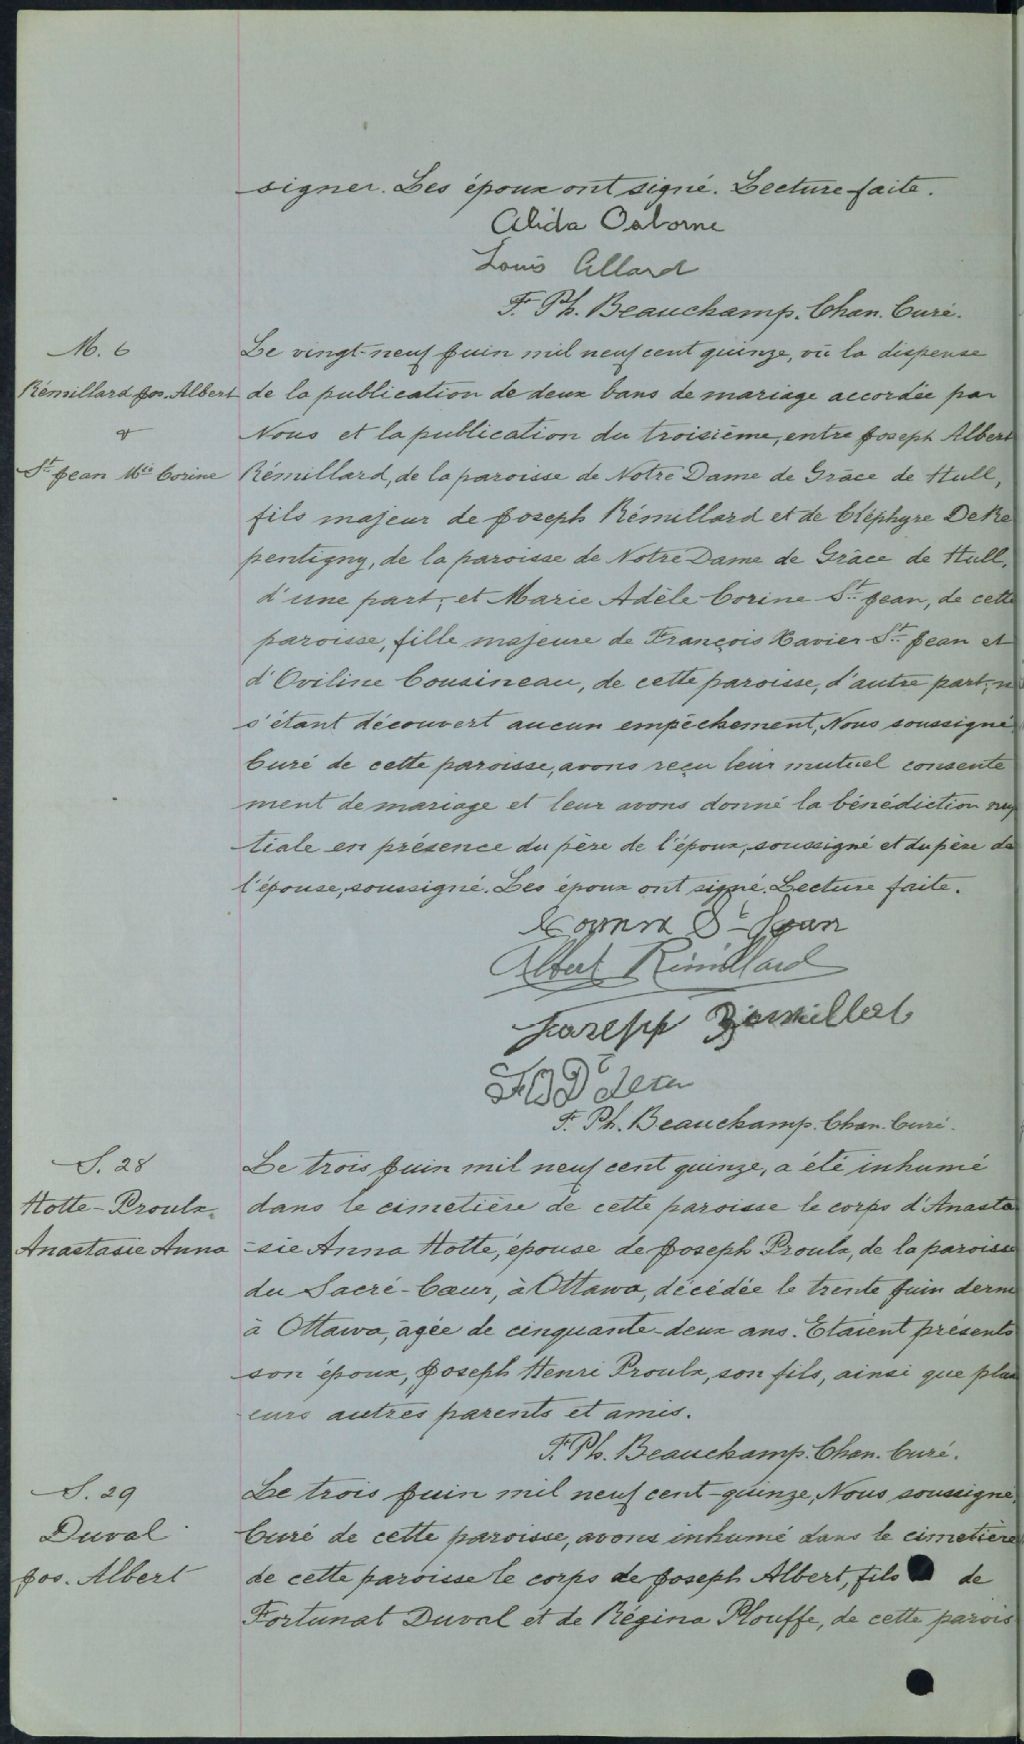 signer. Les époux ont signé. Lecture faite.
Alida Osborne
Louis Allard
F. Ph. Beauchamp. Chan. Curé.
M. 6
Rémillard Jos. Albert
&
St Jean Mie Corine
Le vingt-neuf Juin mil neuf cent quinze, vu la dispense
de la publication de deux bans de mariage accordée par
Nous et la publication du troisième, entre Joseph Albert
Rémillard, de la paroisse de Notre Dame de Grâce de Hull,
fils majeur de Joseph Rémillard et de Cléphyre DeRe
pentigny, de la paroisse de Notre Dame de Grâce de Hull,
d'une part; et Marie Adèle Corine St Jean, de cette
paroisse, fille majeure de François Xavier St Jean et
d'Oviline Cousineau, de cette paroisse, d'autre part; n
s'étant découvert aucun empêchement, Nous soussigné
Curé de cette paroisse, avons reçu leur mutuel consente
ment de mariage et leur avons donné la bénédiction nup
tiale en présence du père de l'époux, soussigné et du père de
l'épouse, soussigné. Les époux ont signé. Lecture faite.
St Jean
Albert Rémillard
Joseph
F. Ph. Beauchamp. Chan. Curé.
S. 28
Hotte-Proulx
Anastasie Anna
Le trois Juin mil neuf cent quinze, a été inhumé
dans le cimetière de cette paroisse le corps d'Anasta
-sie Anna Hotte, épouse de Joseph Proulx, de la paroisse
du Sacré-Cœur, à Ottawa, décédée le trente Juin dern
à Ottawa, âgée de cinquante-deux ans. Etaient présents
son époux, Joseph Henri Proulx, son fils, ainsi que plus
eurs autres parents et amis.
F. Ph. Beauchamp. Chan. Curé.
S. 29
Duval
Jos. Albert
Le trois Juin mil neuf cent-quinze, Nous soussigné,
Curé de cette paroisse, avons inhumé dans le cimetière
de cette paroisse le corps de Joseph Albert, fils de
Fortunat Duval et de Régina Plouffe, de cette parois